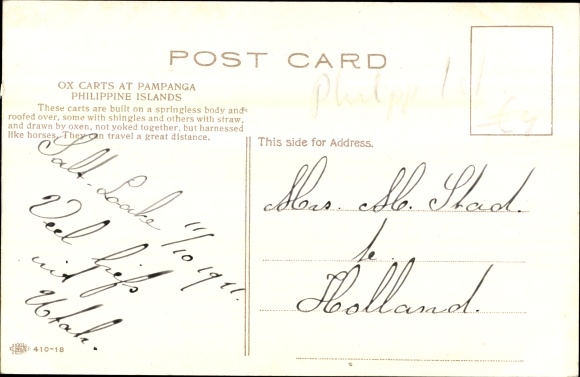 POST CARD
Philipp
OX CARTS AT PAMPANGA
PHILIPPINE ISLANDS
These carts are built on a springless body and
roofed over, some with shingles and others with straw,
and drawn by oxen, not yoked together, but harnessed
like horses. They can travel a great distance.
This side for Address.
Salt-Loake
11/10 1911.
Veel liefs
uit
Utah.
Mrs. M. Stad.
te
Holland.
410-18